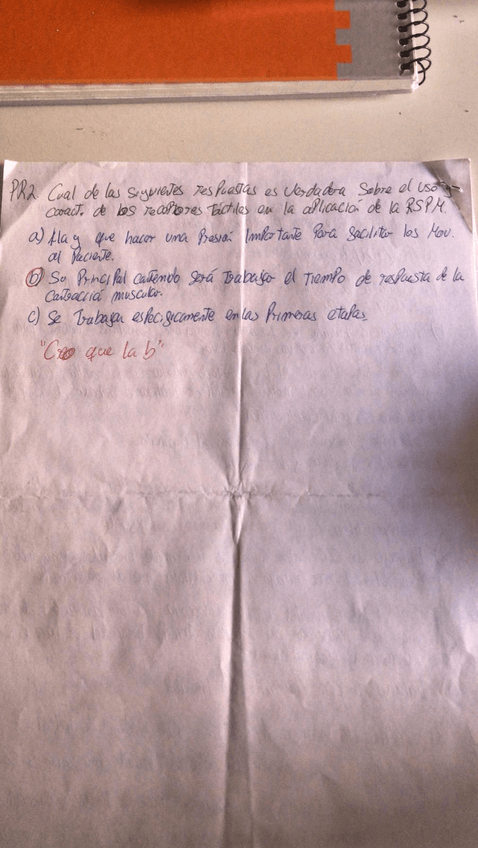 PR2 Cual de las siguientes respuestas es verdadera sobre el uso y
caract. de los receptores táctiles en la aplicación de la RSPM.
a) Hay que hacer una presión importante para facilitar los Mov.
al paciente.
b) Su principal cometido será trabajar el tiempo de respuesta de la
contracción muscular.
c) Se trabajan específicamente en las primeras etapas
"Creo que la b"